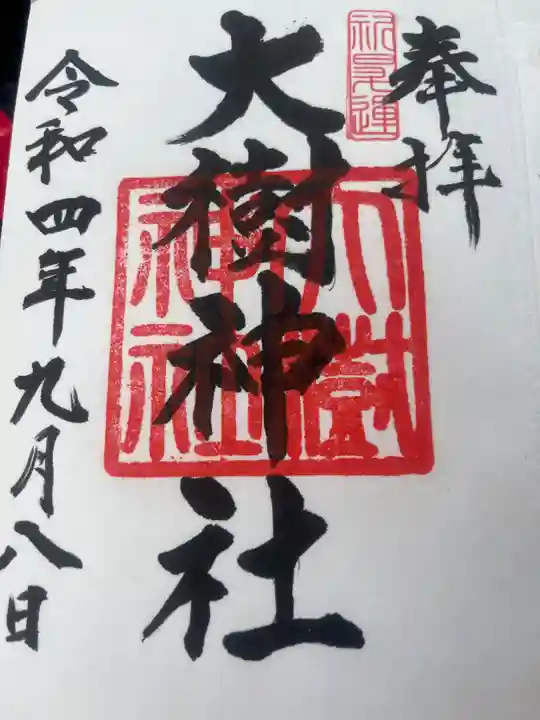 奉拝
大樹神社
令和四年九月八日
大樹神社